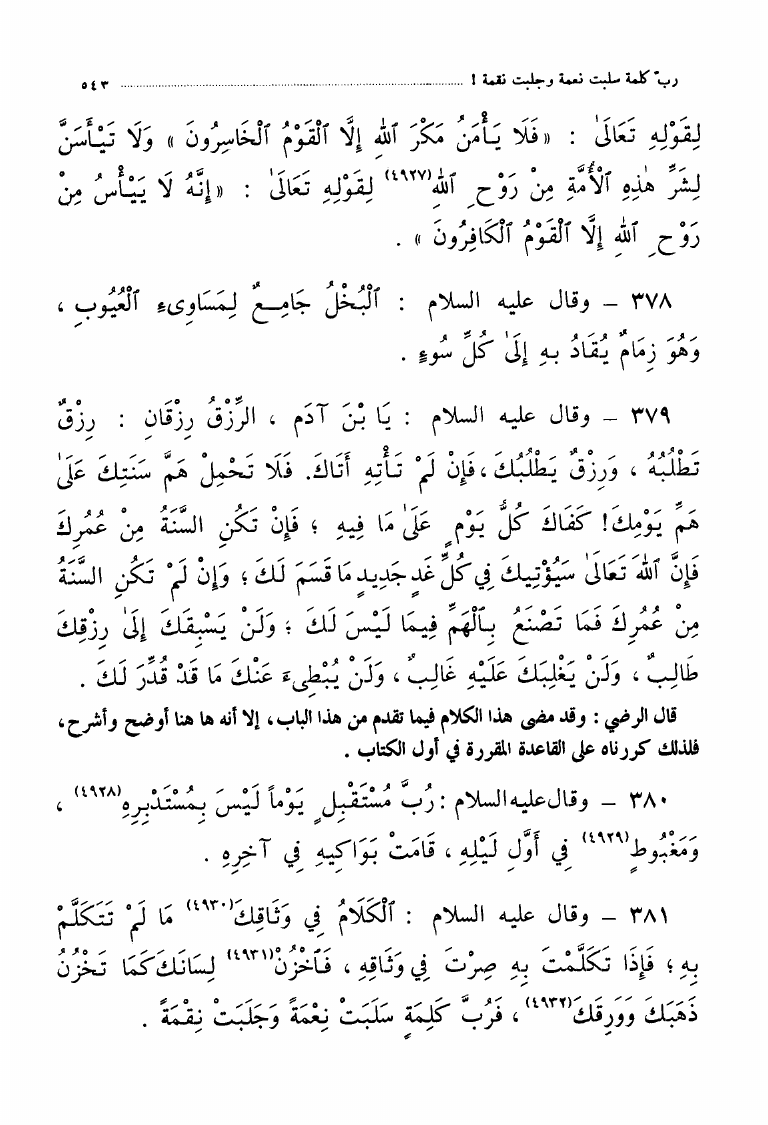 ربّ كلمة سلبت نعمة وجلبت نقمة ! ........................................ ٥٤٣
لِقَوْلِهِ تَعَالَىٰ : « فَلَا يَأْمَنُ مَكْرَ ٱللهِ إِلَّا ٱلْقَوْمُ ٱلْخَاسِرُونَ » وَلَا تَيْأَسَنَّ
لِشَرِّ هٰذِهِ ٱلْأُمَّةِ مِنْ رَوْحِ ٱللهِ(٤٩٢٧) لِقَوْلِهِ تَعَالَىٰ : « إِنَّهُ لَا يَيْأَسُ مِنْ
رَوْحِ ٱللهِ إِلَّا ٱلْقَوْمُ ٱلْكَافِرُونَ » .
٣٧٨ – وقال عليه السلام : ٱلْبُخْلُ جَامِعٌ لِمَسَاوِىءِ ٱلْعُيُوبِ ،
وَهُوَ زِمَامٌ يُقَادُ بِهِ إِلَىٰ كُلِّ سُوءٍ .
٣٧٩ – وقال عليه السلام : يَا بْنَ آدَمَ ، الرِّزْقُ رِزْقَانِ : رِزْقٌ
تَطْلُبُهُ ، وَرِزْقٌ يَطْلُبُكَ ، فَإِنْ لَمْ تَأْتِهِ أَتَاكَ. فَلَا تَحْمِلْ هَمَّ سَنَتِكَ عَلَىٰ
هَمِّ يَوْمِكَ! كَفَاكَ كُلُّ يَوْمٍ عَلَىٰ مَا فِيهِ ؛ فَإِنْ تَكُنِ السَّنَةُ مِنْ عُمُرِكَ
فَإِنَّ ٱللهَ تَعَالَىٰ سَيُؤْتِيكَ فِي كُلِّ غَدٍ جَدِيدٍ مَا قَسَمَ لَكَ ؛ وَإِنْ لَمْ تَكُنِ السَّنَةُ
مِنْ عُمُرِكَ فَمَا تَصْنَعُ بِٱلْهَمِّ فِيمَا لَيْسَ لَكَ ؛ وَلَنْ يَسْبِقَكَ إِلَىٰ رِزْقِكَ
طَالِبٌ ، وَلَنْ يَغْلِبَكَ عَلَيْهِ غَالِبٌ ، وَلَنْ يُبْطِىءَ عَنْكَ مَا قَدْ قُدِّرَ لَكَ .
قال الرضي : وقد مضى هذا الكلام فيما تقدم من هذا الباب ، إلا أنه ها هنا أوضح وأشرح ،
فلذلك كررناه على القاعدة المقررة في أول الكتاب .
٣٨٠ – وقال عليه السلام : رُبَّ مُسْتَقْبِلٍ يَوْماً لَيْسَ بِمُسْتَدْبِرِهِ(٤٩٢٨) ،
وَمَغْبُوطٍ(٤٩٢٩) فِي أَوَّلِ لَيْلِهِ ، قَامَتْ بَوَاكِيهِ فِي آخِرِهِ .
٣٨١ – وقال عليه السلام : ٱلْكَلَامُ فِي وَثَاقِكَ(٤٩٣٠) مَا لَمْ تَتَكَلَّمْ
بِهِ ؛ فَإِذَا تَكَلَّمْتَ بِهِ صِرْتَ فِي وَثَاقِهِ ، فَٱخْزُنْ(٤٩٣١) لِسَانَكَ كَمَا تَخْزُنُ
ذَهَبَكَ وَوَرِقَكَ(٤٩٣٢) ، فَرُبَّ كَلِمَةٍ سَلَبَتْ نِعْمَةً وَجَلَبَتْ نِقْمَةً .